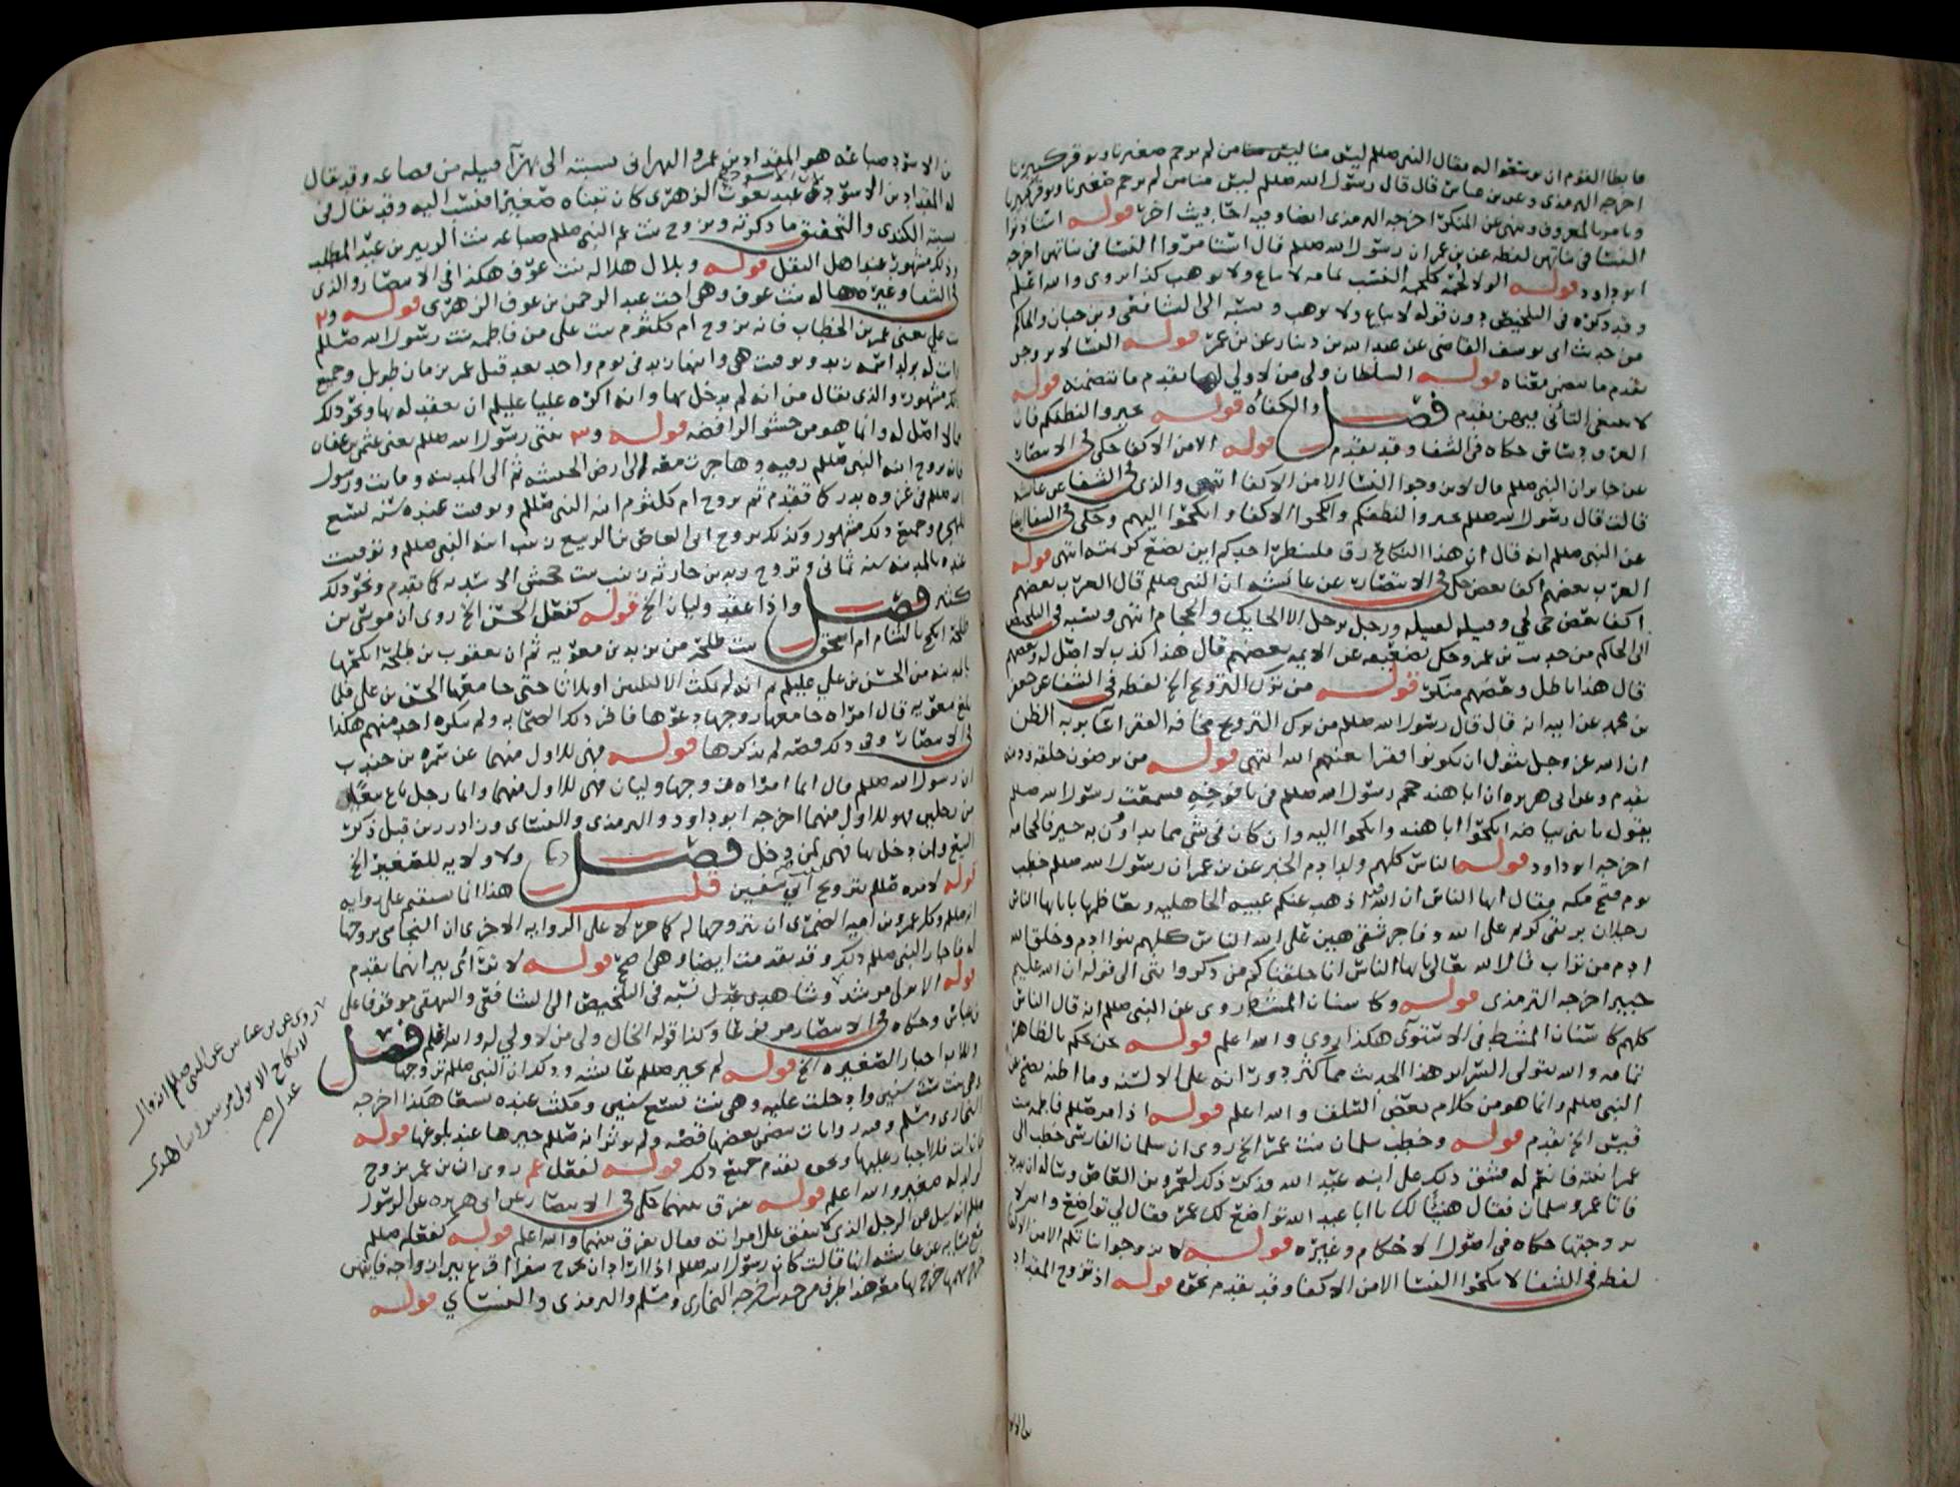 فابطا القوم ان يوسعوا له فقال النبي صللم ليس منا من لم يرحم صغيرنا ويوقر كبيرنا
اخرجه الترمذي وعن بن عباس قال قال رسول الله صللم ليس منا من لم يرحم صغيرنا ويوقر كبيرنا
ويامر بالمعروف وينهى عن المنكر اخرجه الترمذي ايضا وفيه احاديث اخر قوله استاذنوا
النسا في بناتهن لفظه عن بن عمر ان رسول الله صللم قال استامروا النسا في بناتهن اخرجه
ابو داود قوله الولا لحمة كلحمة النسب تمامه لا يباع ولا يوهب كذا يروى والله اعلم
وقد ذكره في التلخيص دون قوله لا يباع ولا يوهب ونسبه الى الشافعي وبن حبان والحاكم
من حديث ابي يوسف القاضي عن عبد الله بن دينار عن بن عمر قوله النسا لا يزوجن
تقدم ما يتضمن معناه قوله السلطان ولي من لا ولي لها تقدم ما تتضمنه قوله
لا ينبغي التاني فيهن تقدم فصل والكفاه قوله تخيروا لنطفكم فان
العرق دساس حكاه في الشفا وقد تقدم قوله الا من الاكفا حكى في الانتصار
عن جابر ان النبي صللم قال لا يزوجوا النسا الا من الاكفا انتهى والذي في الشفا عن عائشه
قالت قال رسول الله صللم تخيروا لنطفكم وانكحوا الاكفا وانكحوا اليهم وحكى في الشفا ايضا
عن النبي صللم انه قال ان هذا النكاح رق فلينظر احدكم اين يضع كريمته انتهى قوله
العرب بعضهم اكفا بعض حكى في الانتصار عن عائشه ان النبي صللم قال العرب بعضهم
اكفا بعض حي لحي وقبيله لقبيله ورجل لرجل الا الحايك والحجام انتهى ونسبه في التلخيص
الى الحاكم من حديث بن عمر وحكى تضعيفه عن الايمه بعضهم قال هذا كذب لا اصل له وبعضهم
قال هذا باطل وبعضهم منكر قوله من ترك التزويج الخ لفظه في الشفا عن جعفر
بن محمد عن ابيه انه قال قال رسول الله صللم من ترك التزويج مخافة الفقر اسا بربه الظن
ان الله عز وجل يقول ان يكونوا فقرا يغنهم الله انتهى قوله من ترضون خلقه ودينه
تقدم وعن ابي هريره ان ابا هند حجم رسول الله صللم في يافوخه فسمعت رسول الله صللم
يقول يا بني بياضه انكحوا ابا هند وانكحوا اليه وان كان في شي مما تداوون به خير فالحجامه
اخرجه ابو داود قوله الناس كلهم ولد ادم الخبر عن بن عمر ان رسول الله صللم خطب
يوم فتح مكه فقال ايها الناس ان الله قد اذهب عنكم عبية الجاهليه وتعاظمها بابائها الناس
رجلان بر تقي كريم على الله وفاجر شقي هين على الله الناس كلهم بنوا ادم وخلق الله
ادم من تراب قال الله تعالى يا ايها الناس انا خلقناكم من ذكر وانثى الى قوله ان الله عليم
خبير اخرجه الترمذي قوله وكاسنان المشط روي عن النبي صللم انه قال الناس
كلهم كاسنان المشط في الاستوى هكذا روي والله اعلم قوله نحن نحكم بالظاهر
تمامه والله يتولى السراير هذا الحديث مما كثر دورانه على الالسنه وما اظنه يصح عن
النبي صللم وانما هو من كلام بعض السلف والله اعلم قوله اذ امر صللم فاطمه بنت
قيس الخ تقدم قوله وخطب سلمان بنت عمر الخ روي ان سلمان الفارسي خطب الى
عمر ابنته فانعم له فشق ذلك على ابنه عبد الله فذكر ذلك لعمرو بن العاص وساله ان يدبر
فاتا عمرو سلمان فقال هنيئا لك يا ابا عبد الله تواضع لك عمر فقال لي تواضع والله لا
تزوجتها حكاه في اصول الاحكام وغيره قوله لا يزوجوا بناتكم الا من الاكفا
لفظه في الشفا لا تنكحوا النسا الا من الاكفا وقد تقدم نحوه قوله اذ تزوج المقداد
بن الاسود ضباعه هو المقداد بن عمرو البهراني نسبته الى بهرا قبيله من قضاعه وقد يقال
له المقداد بن الاسود لان الاسود بن عبد يغوث الزهري كان تبناه صغيرا فنسب اليه وقد يقال في
نسبته الكندي والتحقيق ما ذكرته وتزوج بنت عم النبي صللم ضباعه بنت الزبير بن عبد المطلب
وذلك مشهور عند اهل النقل قوله وبلال هلاله بنت عوف هكذا في الانتصار والذي
في الشفا وغيره هاله بنت عوف وهي اخت عبد الرحمن بن عوف الزهري قوله و
بنت علي يعني عمر بن الخطاب فانه تزوج ام كلثوم بنت علي من فاطمه بنت رسول الله صللم
وات له بولد اسمه زيد وتوفيت هي وابنها زيد في يوم واحد بعد قتل عمر بزمان طويل وجميع
ذلك مشهور والذي يقال من انه لم يدخل بها وانه اكره عليا عليلم ان يعقد له بها ونحو ذلك
مما لا اصل له وانما هو من حشو الرافضه قوله و بنتي رسول الله صللم يعني عثمن بن عفان
فانه تزوج ابنه النبي صللم رقيه وهاجرت معه الى ارض الحبشه ثم الى المدينه وماتت ورسول
الله صللم في غزوه بدر كما تقدم ثم تزوج ام كلثوم ابنه النبي صللم وتوفيت عنده سنه تسع
للهجره وجميع ذلك مشهور وكذلك تزوج ابي العاص بن الربيع زينب ابنه النبي صللم وتوفيت
عنده بالمدينه سنه ثماني وتزوج زيد بن حارثه زينب بنت جحش الاسديه كما تقدم ونحو ذلك
كثير فصل واذا عقد وليان الخ قوله كفعل الحسن الخ روي ان موسى بن
طلحه انكح بالشام ام اسحق بنت طلحه من يزيد بن معويه ثم ان يعقوب بن طلحه انكحها
بالمدينه من الحسن بن علي عليلم ثم انه لم يمكث الا ليلتين او ثلاثا حتى جامعها الحسن بن علي فلما
بلغ معويه قال امراه جامعها زوجها دعوها فاقر ذلك الصحابه ولم ينكره احد منهم هكذا
في الانتصار وفي ذلك قصه لم نذكرها قوله فهي للاول منهما عن سمره بن جندب
ان رسول الله صللم قال ايما امراه زوجها وليان فهي للاول منهما وايما رجل باع بيعا
من رجلين فهو للاول منهما اخرجه ابو داود والترمذي والنسائي وزاد رزين قبل ذكر
البيع وان دخل بها فهي لمن دخل فصل ولا ولايه للصغير الخ
قوله لامره صللم بتزويج ابي سفين قلت هذا انما يستقيم على روايه
انه صللم وكل عمرو بن اميه الضمري ان يتزوجها له كما مر لا على الروايه الاخرى ان النجاشي زوجها
له فاجاز النبي صللم ذلك وقد تقدمت ايضا وهي اصح قوله لا تراءى نيرانهما تقدم
قوله الا بولي مرشد وشاهدي عدل نسبه في التلخيص الى الشافعي والبيهقي موقوفا على
بن عباس وحكاه في الانتصار مرفوعا وكذا قوله الخال ولي من لا ولي له والله اعلم فصل
وللاب اجبار الصغيره الخ قوله لم يخير صللم عائشه وذلك ان النبي صللم تزوجها
وهي بنت ست سنين وادخلت عليه وهي بنت تسع سنين ومكثت عنده تسعا هكذا اخرجه
البخاري ومسلم وفيه روايات تتضمن بعضها قصه ولم يوثر انه صللم خيرها عند بلوغها قوله
فان ابت فلا اجبار عليها ونحوه تقدم جميع ذلك قوله لفعل عمر روي ان بن عمر تزوج
لولد له صغير والله اعلم قوله يفرق بينهما حكى في الانتصار عن ابي هريره عن الرسول
صللم انه سئل عن الرجل الذي لا ينفق على امراته فقال يفرق بينهما والله اعلم قوله كفعله صللم
مع نسائه عن عائشه انها قالت كان رسول الله صللم اذا اراد ان يخرج سفرا اقرع بين ازواجه فايتهن
خرج سهمها خرج بها معه هذا طرف من حديث اخرجه البخاري ومسلم والترمذي والنسائي قوله
روي عن بن عباس عن النبي صللم انه قال
لا نكاح الا بولي مرشد وشاهدي
عدل